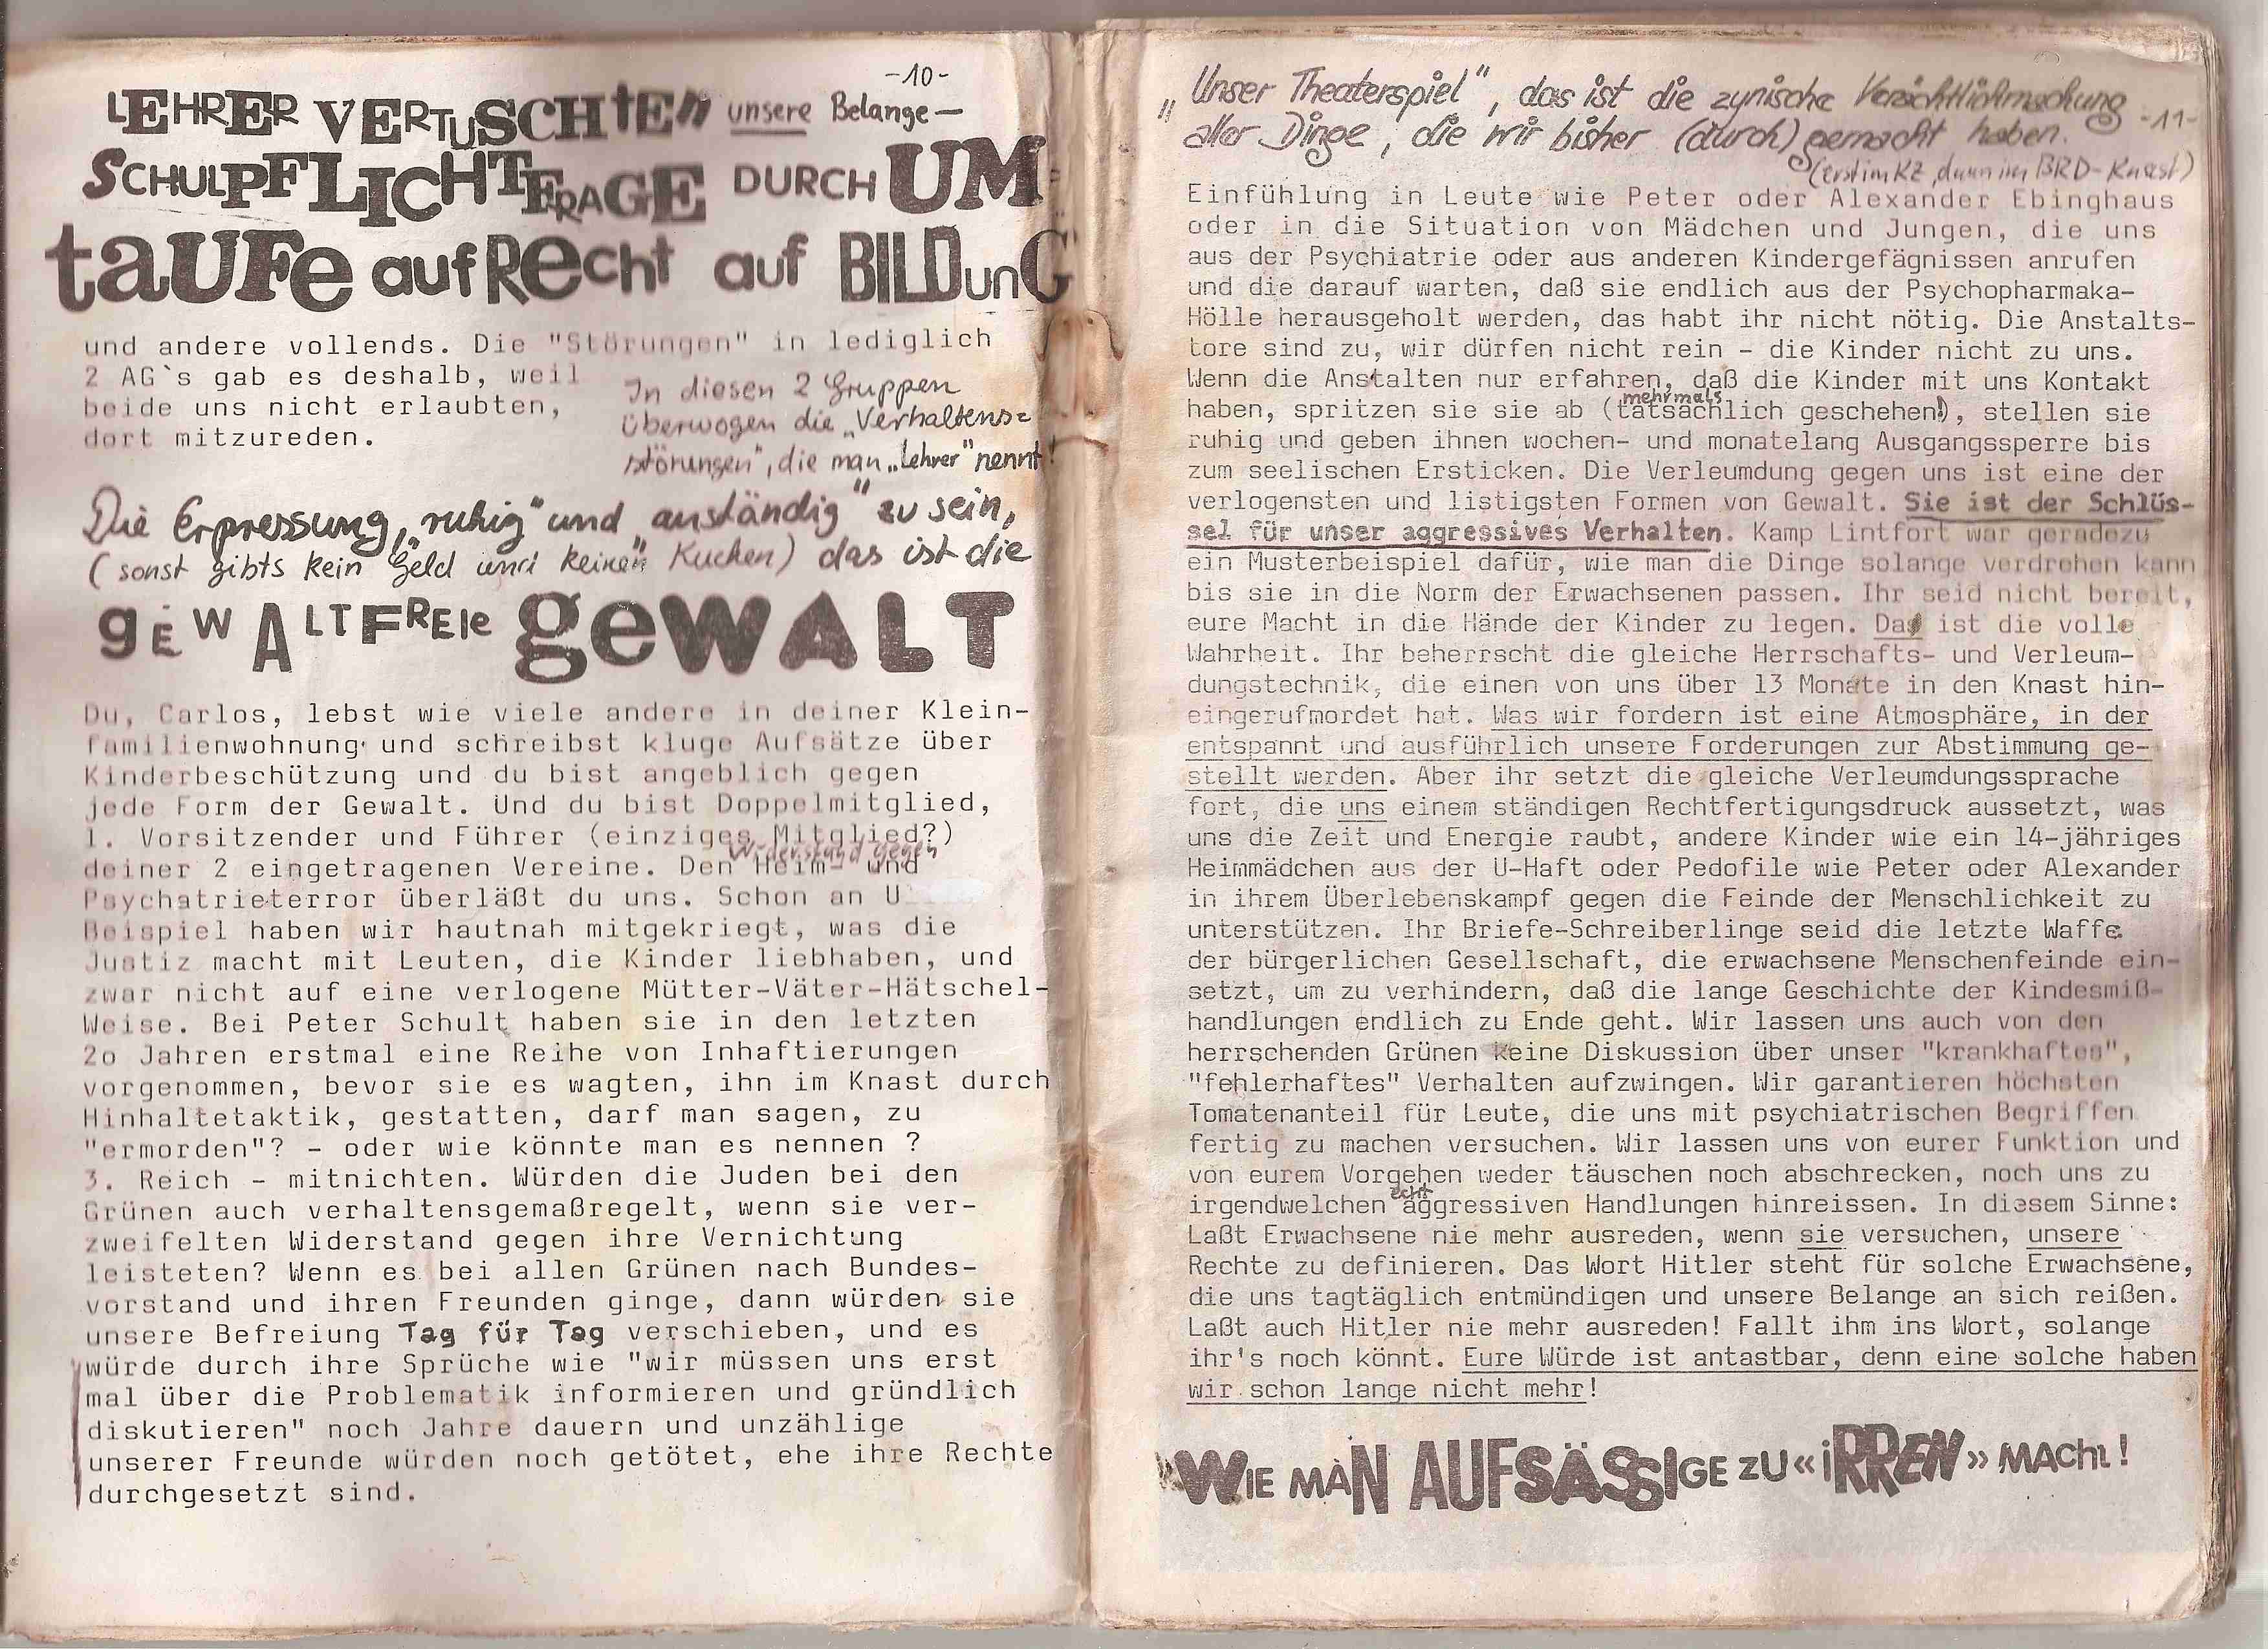 -10-
LEHRER VERTUSCHTEN unsere Belange—
SCHULPFLICHTFRAGE DURCH UM-
taUFe auf Recht auf BILDunG
und andere vollends. Die "Störungen" in lediglich
2 AG`s gab es deshalb, weil
beide uns nicht erlaubten,
dort mitzureden.
In diesen 2 Gruppen
überwogen die „Verhaltens=
störungen", die man „Lehrer" nennt!
Die Erpressung, „ruhig" und „anständig" zu sein,
(sonst gibts kein Geld und keinen Kuchen) das ist die
gEWALTFREIe geWALT
Du, Carlos, lebst wie viele andere in deiner Klein-
familienwohnung und schreibst kluge Aufsätze über
Kinderbeschützung und du bist angeblich gegen
jede Form der Gewalt. Und du bist Doppelmitglied,
1. Vorsitzender und Führer (einziges Mitglied?)
deiner 2 eingetragenen Vereine. Den Widerstand gegen Heim- und
Psychatrieterror überläßt du uns. Schon an U
Beispiel haben wir hautnah mitgekriegt, was die
Justiz macht mit Leuten, die Kinder liebhaben, und
zwar nicht auf eine verlogene Mütter-Väter-Hätschel-
Weise. Bei Peter Schult haben sie in den letzten
2o Jahren erstmal eine Reihe von Inhaftierungen
vorgenommen, bevor sie es wagten, ihn im Knast durch
Hinhaltetaktik, gestatten, darf man sagen, zu
"ermorden"? - oder wie könnte man es nennen ?
3. Reich - mitnichten. Würden die Juden bei den
Grünen auch verhaltensgemaßregelt, wenn sie ver-
zweifelten Widerstand gegen ihre Vernichtung
leisteten? Wenn es bei allen Grünen nach Bundes-
vorstand und ihren Freunden ginge, dann würden sie
unsere Befreiung Tag für Tag verschieben, und es
würde durch ihre Sprüche wie "wir müssen uns erst
mal über die Problematik informieren und gründlich
diskutieren" noch Jahre dauern und unzählige
unserer Freunde würden noch getötet, ehe ihre Rechte
durchgesetzt sind.
„Unser Theaterspiel", das ist die zynische Verächtlichmachung
-11-
aller Dinge, die wir bisher (durch) gemacht haben.
(erst im KZ, dann im BRD-Knast)
Einfühlung in Leute wie Peter oder Alexander Ebinghaus
oder in die Situation von Mädchen und Jungen, die uns
aus der Psychiatrie oder aus anderen Kindergefägnissen anrufen
und die darauf warten, daß sie endlich aus der Psychopharmaka-
Hölle herausgeholt werden, das habt ihr nicht nötig. Die Anstalts-
tore sind zu, wir dürfen nicht rein - die Kinder nicht zu uns.
Wenn die Anstalten nur erfahren, daß die Kinder mit uns Kontakt
haben, spritzen sie sie ab (mehrmals tatsächlich geschehen!), stellen sie
ruhig und geben ihnen wochen- und monatelang Ausgangssperre bis
zum seelischen Ersticken. Die Verleumdung gegen uns ist eine der
verlogensten und listigsten Formen von Gewalt. Sie ist der Schlüs-
sel für unser aggressives Verhalten. Kamp Lintfort war geradezu
ein Musterbeispiel dafür, wie man die Dinge solange verdrehen kann
bis sie in die Norm der Erwachsenen passen. Ihr seid nicht bereit,
eure Macht in die Hände der Kinder zu legen. Das ist die volle
Wahrheit. Ihr beherrscht die gleiche Herrschafts- und Verleum-
dungstechnik, die einen von uns über 13 Monate in den Knast hin-
eingerufmordet hat. Was wir fordern ist eine Atmosphäre, in der
entspannt und ausführlich unsere Forderungen zur Abstimmung ge-
stellt werden. Aber ihr setzt die gleiche Verleumdungssprache
fort, die uns einem ständigen Rechtfertigungsdruck aussetzt, was
uns die Zeit und Energie raubt, andere Kinder wie ein 14-jähriges
Heimmädchen aus der U-Haft oder Pedofile wie Peter oder Alexander
in ihrem Überlebenskampf gegen die Feinde der Menschlichkeit zu
unterstützen. Ihr Briefe-Schreiberlinge seid die letzte Waffe
der bürgerlichen Gesellschaft, die erwachsene Menschenfeinde ein-
setzt, um zu verhindern, daß die lange Geschichte der Kindesmiß-
handlungen endlich zu Ende geht. Wir lassen uns auch von den
herrschenden Grünen keine Diskussion über unser "krankhaftes",
"fehlerhaftes" Verhalten aufzwingen. Wir garantieren höchsten
Tomatenanteil für Leute, die uns mit psychiatrischen Begriffen
fertig zu machen versuchen. Wir lassen uns von eurer Funktion und
von eurem Vorgehen weder täuschen noch abschrecken, noch uns zu
irgendwelchen echt aggressiven Handlungen hinreissen. In diesem Sinne:
Laßt Erwachsene nie mehr ausreden, wenn sie versuchen, unsere
Rechte zu definieren. Das Wort Hitler steht für solche Erwachsene,
die uns tagtäglich entmündigen und unsere Belange an sich reißen.
Laßt auch Hitler nie mehr ausreden! Fallt ihm ins Wort, solange
ihr's noch könnt. Eure Würde ist antastbar, denn eine solche haben
wir schon lange nicht mehr!
WIE MAN AUFSÄSSIGE ZU «iRREN» MACHt!